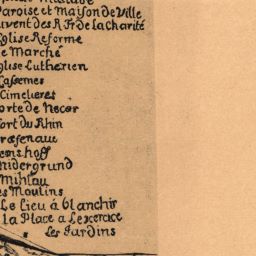 Paroise et Maison de Ville
uvent des R. Fr de la charité
glise Reforme
e Marché
glise Lutherien
Casemes
Cimetieres
orte de Necer
ort du Rhin
ræfenau
emshoff
nidergrund
Mihlau
es Moulins
Le lieu á blanchir
la Place a Lexerace
Les Jardins